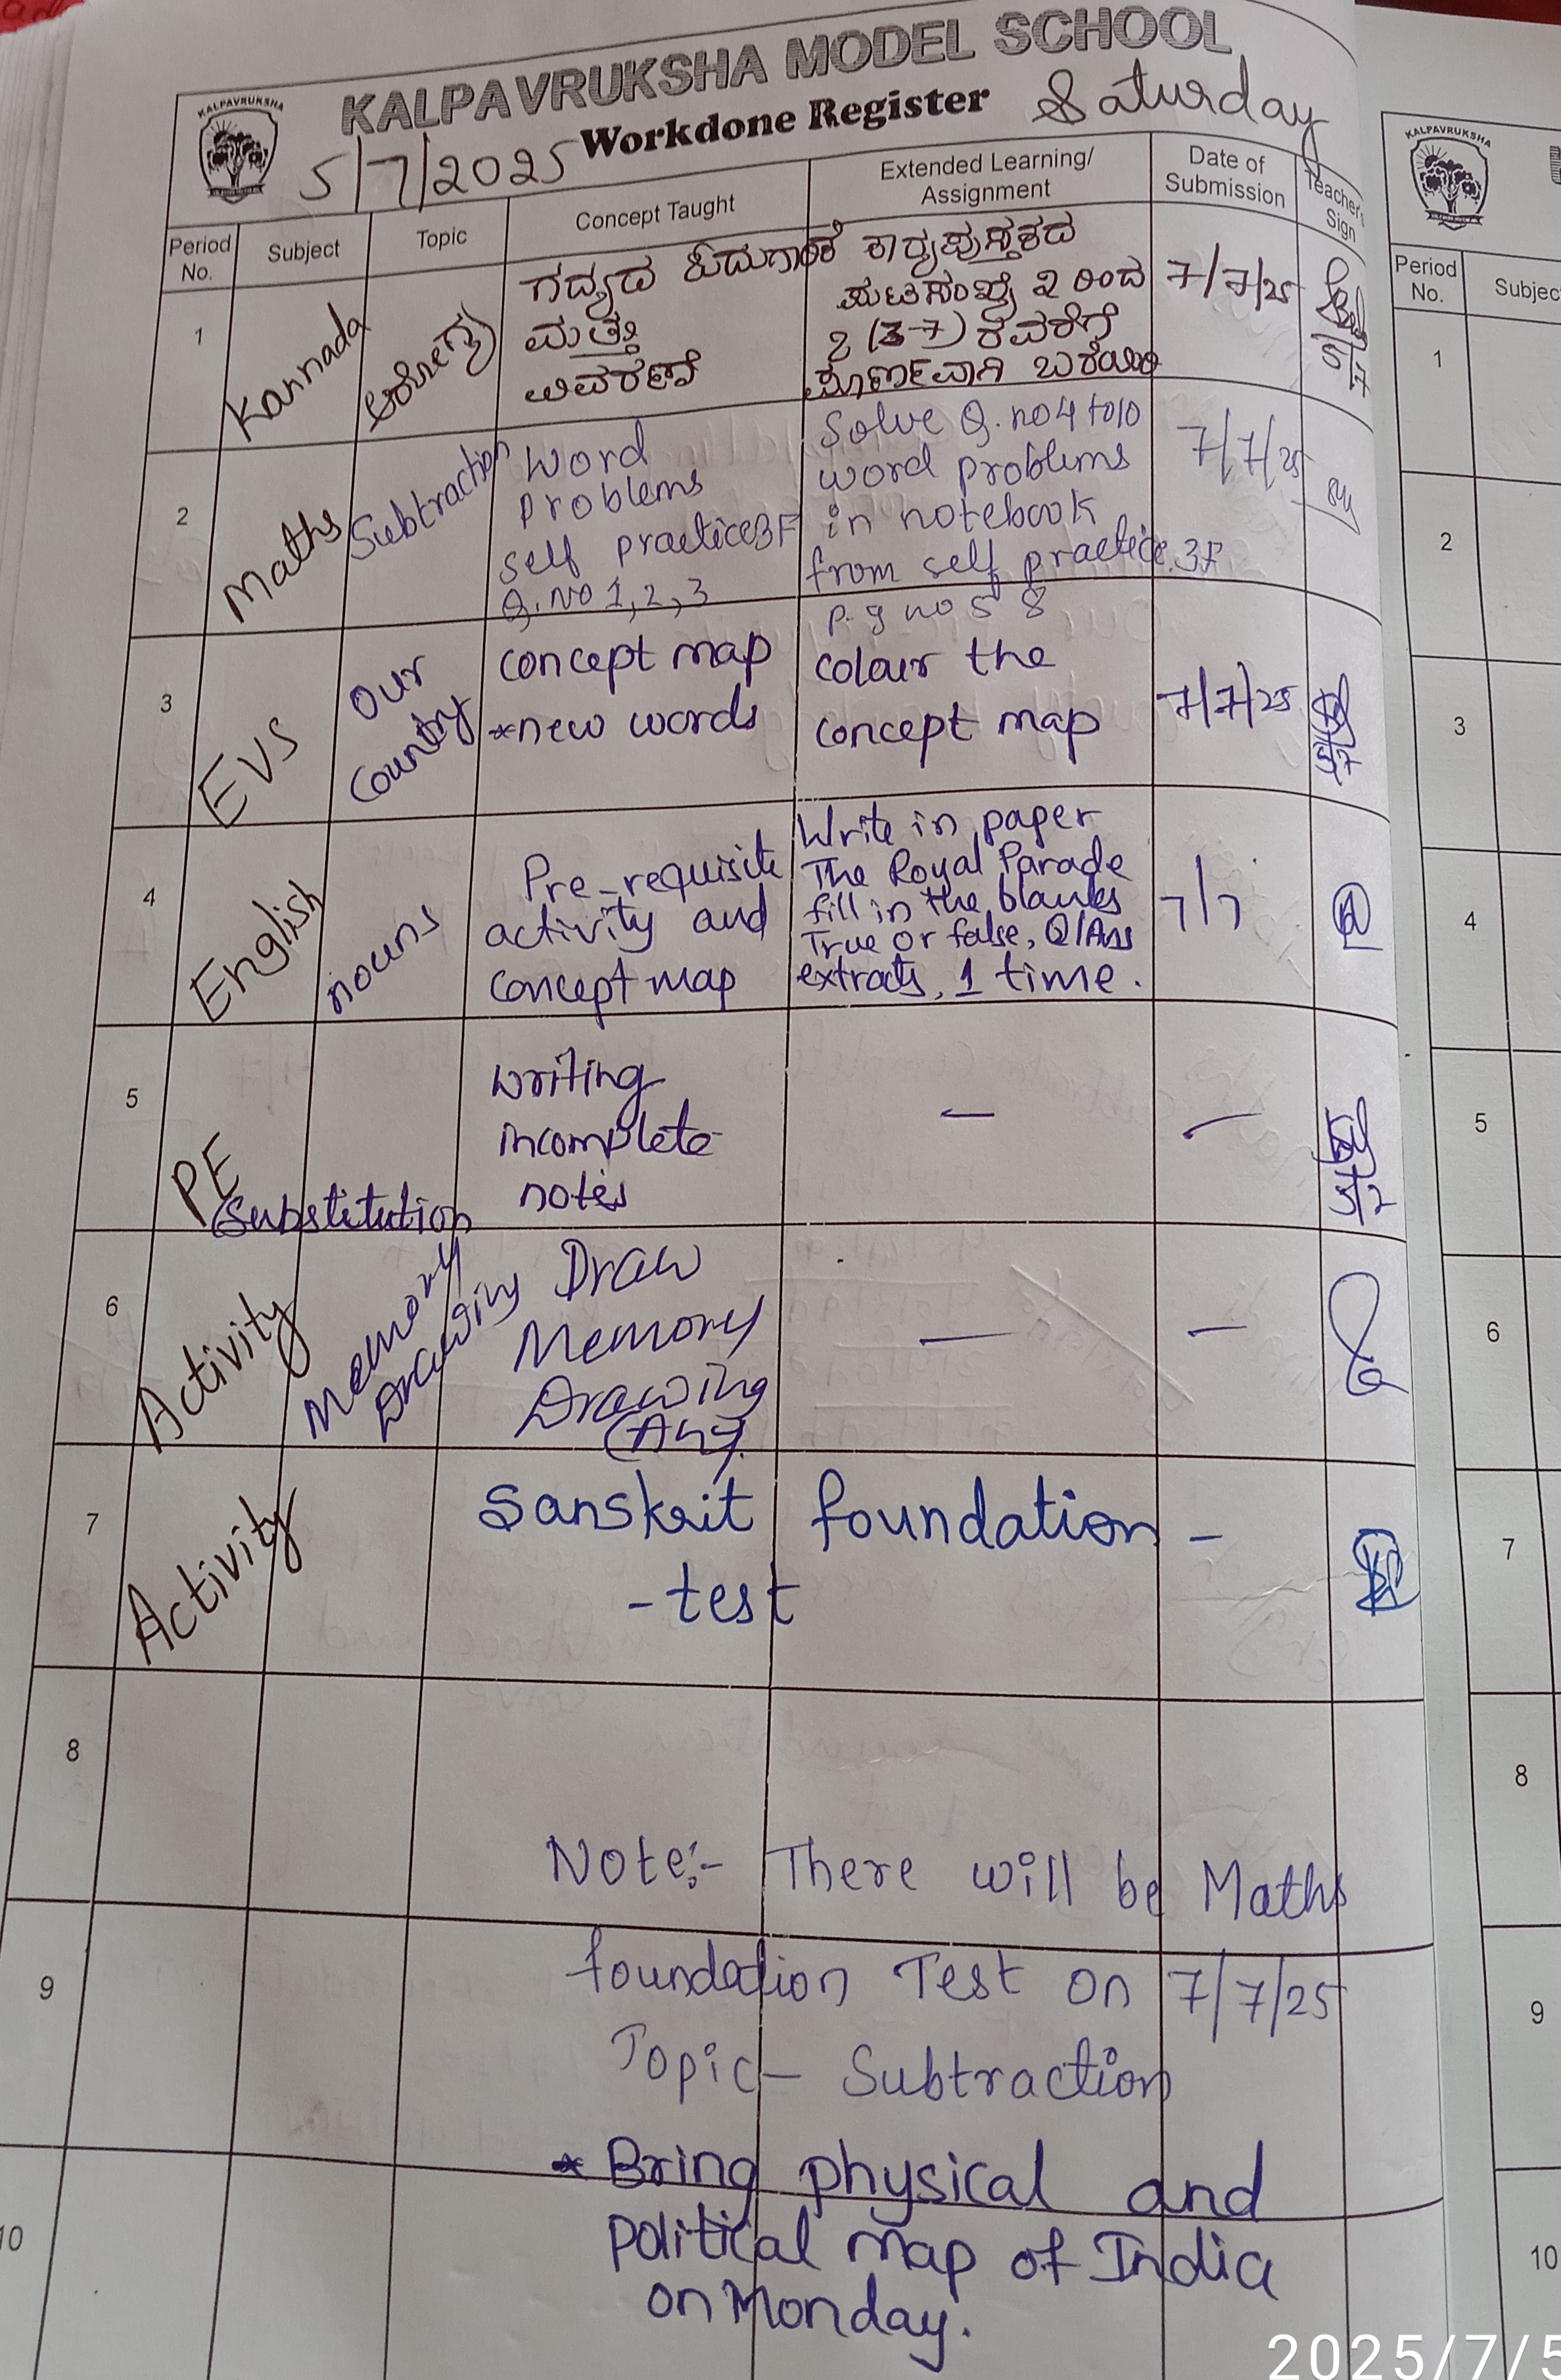 KALPAVRUKSHA
KALPAVRUKSHA MODEL SCHOOL
Workdone Register
Saturday
5/7/2025
Period No.
Subject
Topic
Concept Taught
Extended Learning/ Assignment
Date of Submission
Teacher's Sign
1
Kannada
ಆರೋಗ್ಯ
ಗದ್ಯದ ಓದುಗಾರಿಕೆ
ಮತ್ತು
ವಿವರಣೆ
ಕಾರ್ಯಪುಸ್ತಕದ
ಪುಟಸಂಖ್ಯೆ ೨ ರಿಂದ
(3-7) ರವರೆಗೆ
ಪೂರ್ಣವಾಗಿ ಬರೆಯಿರಿ
7/7/25
2
Maths
Subtraction
Word
Problems
self practice 3F
Q. No 1, 2, 3
Solve Q. no 4 to 10
word problems
in notebook
from self practice 3F
p.g no 58
7/7/25
3
EVS
Our
Country
concept map
*new words
colour the
concept map
7/7/25
4
English
nouns
Pre-requisite
activity and
concept map
Write in paper
The Royal Parade
fill in the blanks
True or false, Q/Ans
extracts, 1 time.
7/7
5
PE
(Substitution
writing
incomplete
notes
—
—
6
Activity
Memory
Drawing
Draw
Memory
Drawing
(Any)
—
—
7
Activity
Sanskrit foundation -
- test
8
Note:- There will be Maths
9
foundation Test on 7/7/25
Topic - Subtraction
* Bring physical and
10
political map of India
on Monday.
KALPAVRUKSHA
Period No.
Subjec
1
2
3
4
5
6
7
8
9
10
2025/7/5